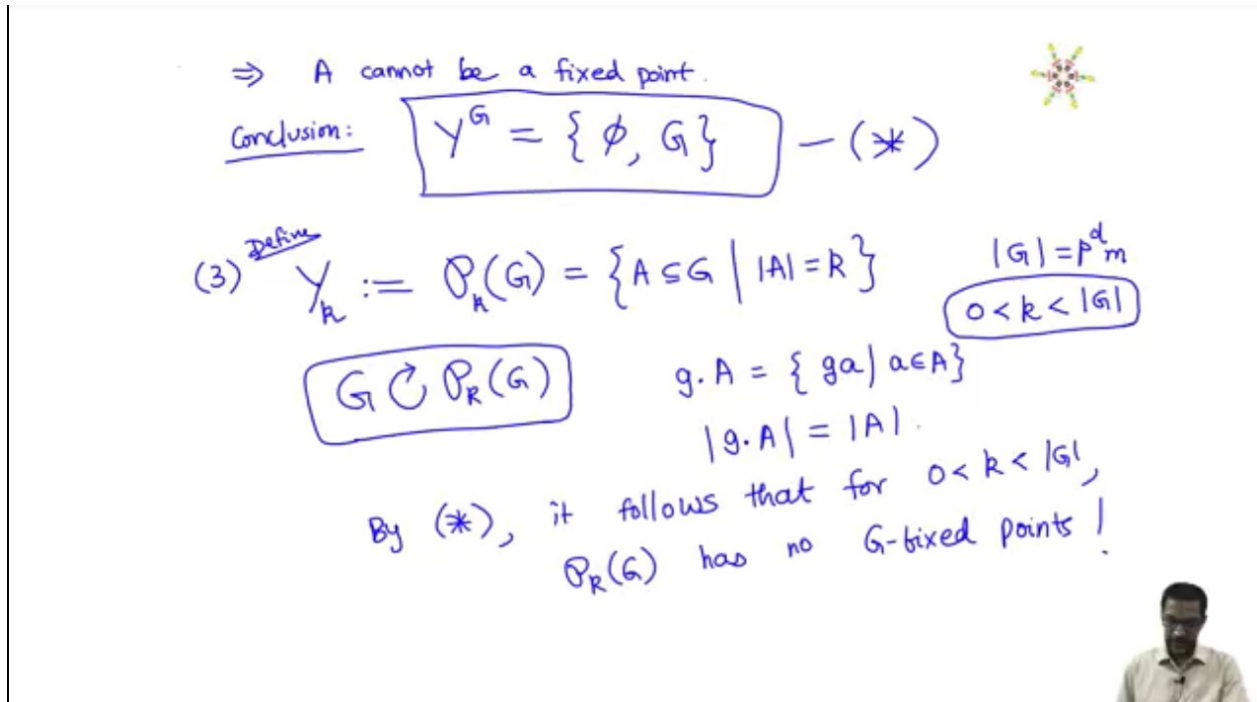 ⇒ A cannot be a fixed point.
Conclusion: Y^G = { ∅, G } — (*)
(3) Define Y_k := P_k(G) = { A ⊆ G | |A| = k }
|G| = p^d m
0 < k < |G|
G ↻ P_k(G)
g.A = { ga | a ∈ A }
|g.A| = |A|.
By (*), it follows that for 0 < k < |G|,
P_k(G) has no G-fixed points!